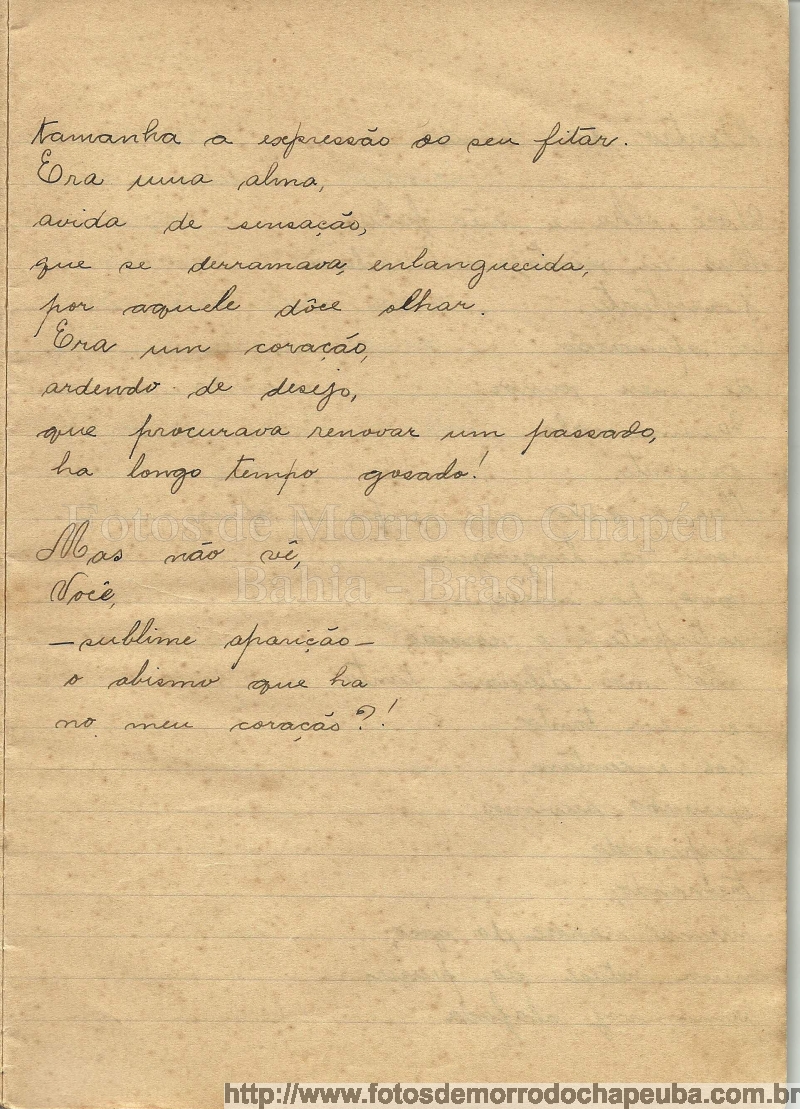 tamanha a expressão do seu fitar.
Era uma alma,
avida de sensação,
que se derramava, enlanguecida,
por aquele dôce olhar.
Era um coração,
ardendo de desejo,
que procurava renovar um passado,
ha longo tempo gosado!
Fotos de Morro do Chapéu
Mas não vê,
Bahia - Brasil
Você,
—sublime aparição—
o abismo que ha
no meu coração?!
http://www.fotosdemorrodochapeuba.com.br